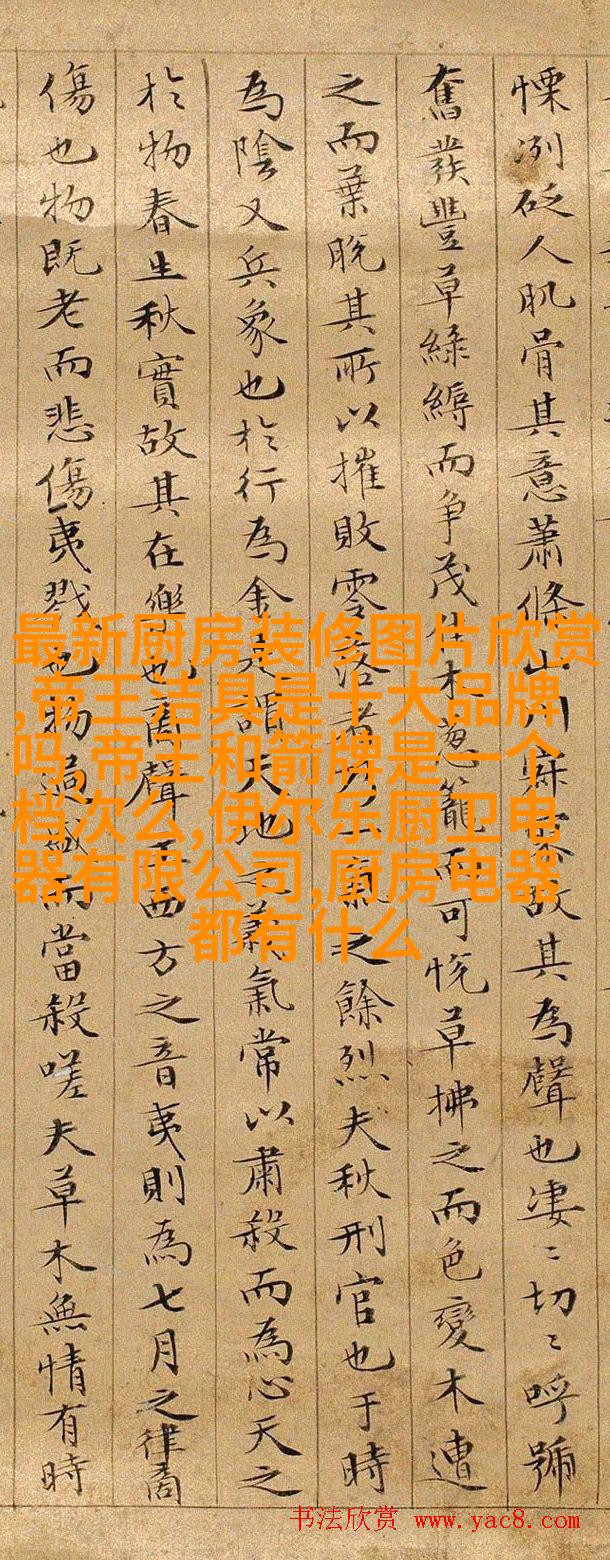 慄冽砭人肌骨其意蕭條山川寂寥故其為聲也凄〻切〻呼號
奮發豐草綠縟而争茂佳木葱籠而可悅草拂之而色變木遭
之而葉脫其所以摧敗零落者乃一氣之餘烈夫秋刑官也于時
為陰又兵象也於行為金是謂天地之義氣常以肅殺而為心天之
於物春生秋實故其在樂也商聲主西方之音夷則為七月之律商
傷也物既老而悲傷夷戮也物過盛而當殺嗟夫草木無情有時
最新厨房装修图片欣赏
,帝王洁具是十大品牌
吗,帝王和箭牌是一个
档次么,伊尔乐厨卫电
器有限公司,厨房电器
都有什么
书法欣赏 www.yac8.com